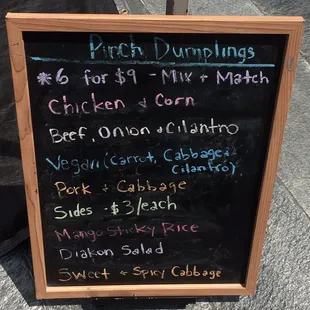 Pinch Dumplings
*6 for $9 - Mix + Match
Chicken & Corn
Beef, Onion & Cilantro
Vegan (Carrot, Cabbage &
Cilantro)
Pork + Cabbage
Sides - $3/each
Mango Sticky Rice
Diakon Salad
Sweet + Spicy Cabbage